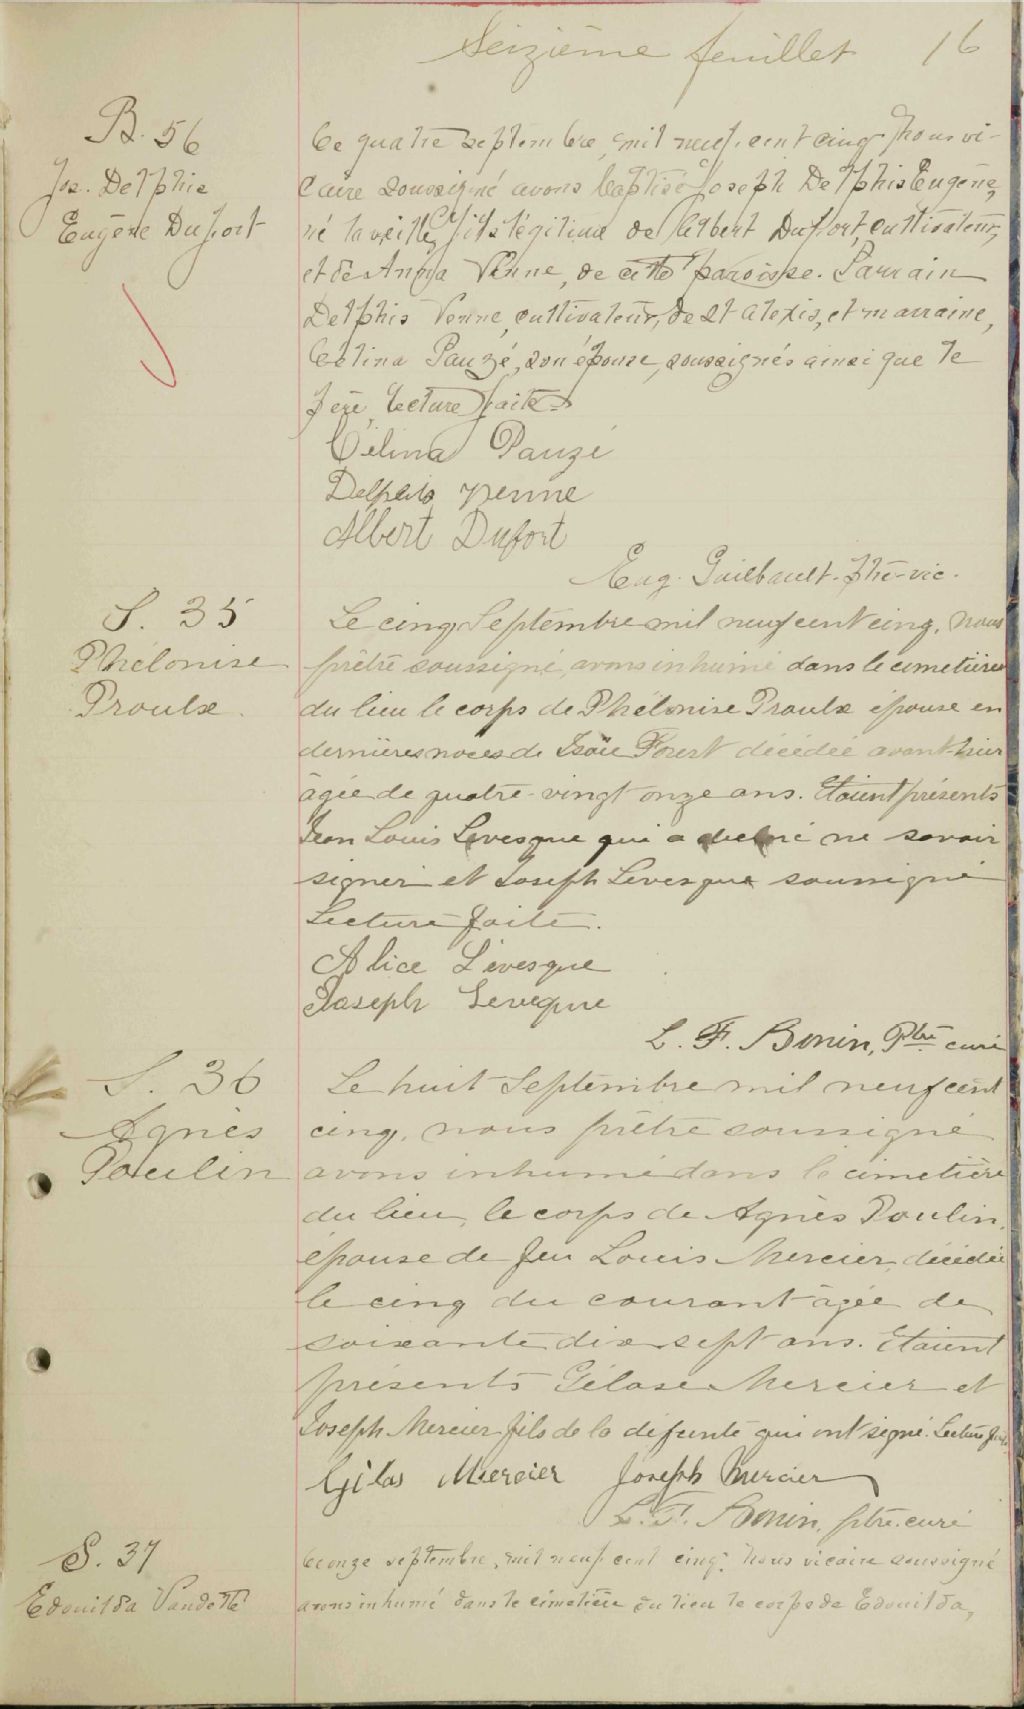 Seizième feuillet 16
B. 56
Jos. Delphis
Eugène Dufort
Le quatre septembre, mil neuf cent cinq, nous vi-
caire soussigné avons baptisé Joseph Delphis Eugène,
né la veille, fils légitime de Albert Dufort, cultivateur,
et de Anna Venne, de cette paroisse. Parrain
Delphis Venne, cultivateur, de St Alexis, et marraine,
Celina Pauzé, son épouse, soussignés ainsi que le
père, lecture faite.
Célina Pauzé
Delphis Venne
Albert Dufort
Eug. Guilbault. ptre-vic.
S. 35
Phélonise
Proulx
Le cinq Septembre mil neuf cent cinq, nous
prêtre soussigné, avons inhumé dans le cimetière
du lieu le corps de Phélonise Proulx épouse en
dernières noces de Isaïe Forest décédée avant-hier
âgée de quatre-vingt onze ans. Etaient présents
Jean Louis Levesque qui a declaré ne savoir
signer et Joseph Levesque soussigné
Lecture faite.
Alice Lévesque
Joseph Leveque
L. F. Bonin, Ptre curé
S. 36
Agnès
Poulin
Le huit Septembre mil neuf cent
cinq, nous prêtre soussigné
avons inhumé dans le cimetière
du lieu, le corps de Agnès Poulin,
épouse de feu Louis Mercier, décédée
le cinq du courant âgée de
soixante dix sept ans. Etaient
présents Gélase Mercier et
Joseph Mercier fils de la défunte qui ont signé. Lecture faite
Gilas Mercier Joseph Mercier
L. F. Bonin, ptre. curé
S. 37
Edouilda Vandette
Le onze septembre, mil neuf cent cinq, nous vicaire soussigné
avons inhumé dans le cimetière du lieu le corps de Edouilda,